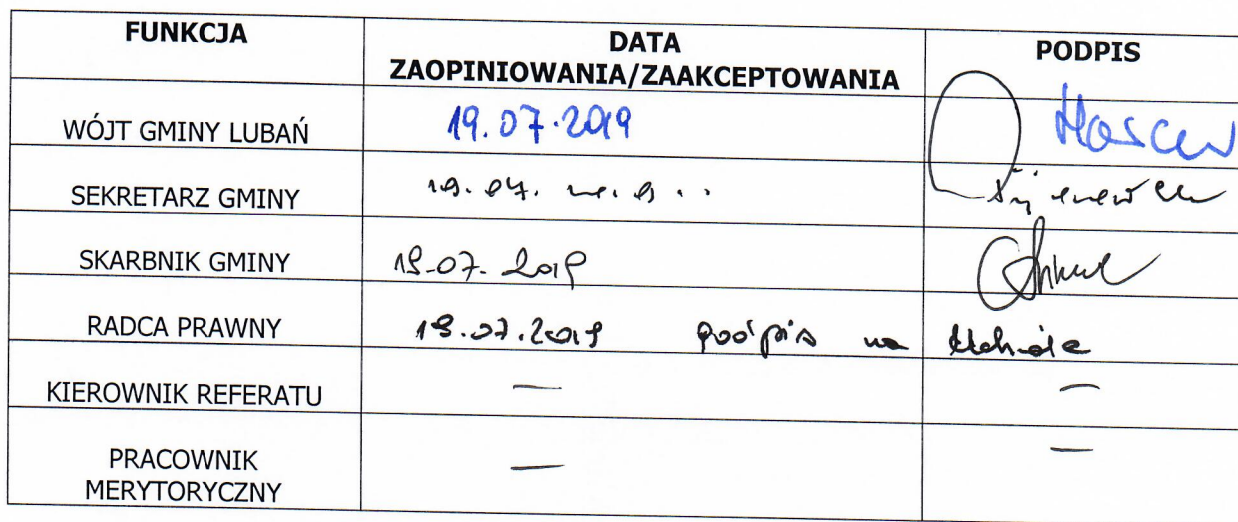 FUNKCJA DATA PODPIS
ZAOPINIOWANIA/ZAAKCEPTOWANIA
WÓJT GMINY LUBAŃ 19.07.2019
SEKRETARZ GMINY 19.07.
SKARBNIK GMINY 19.07.2019
RADCA PRAWNY 19.07.2019 podpis na
KIEROWNIK REFERATU — —
PRACOWNIK — —
MERYTORYCZNY